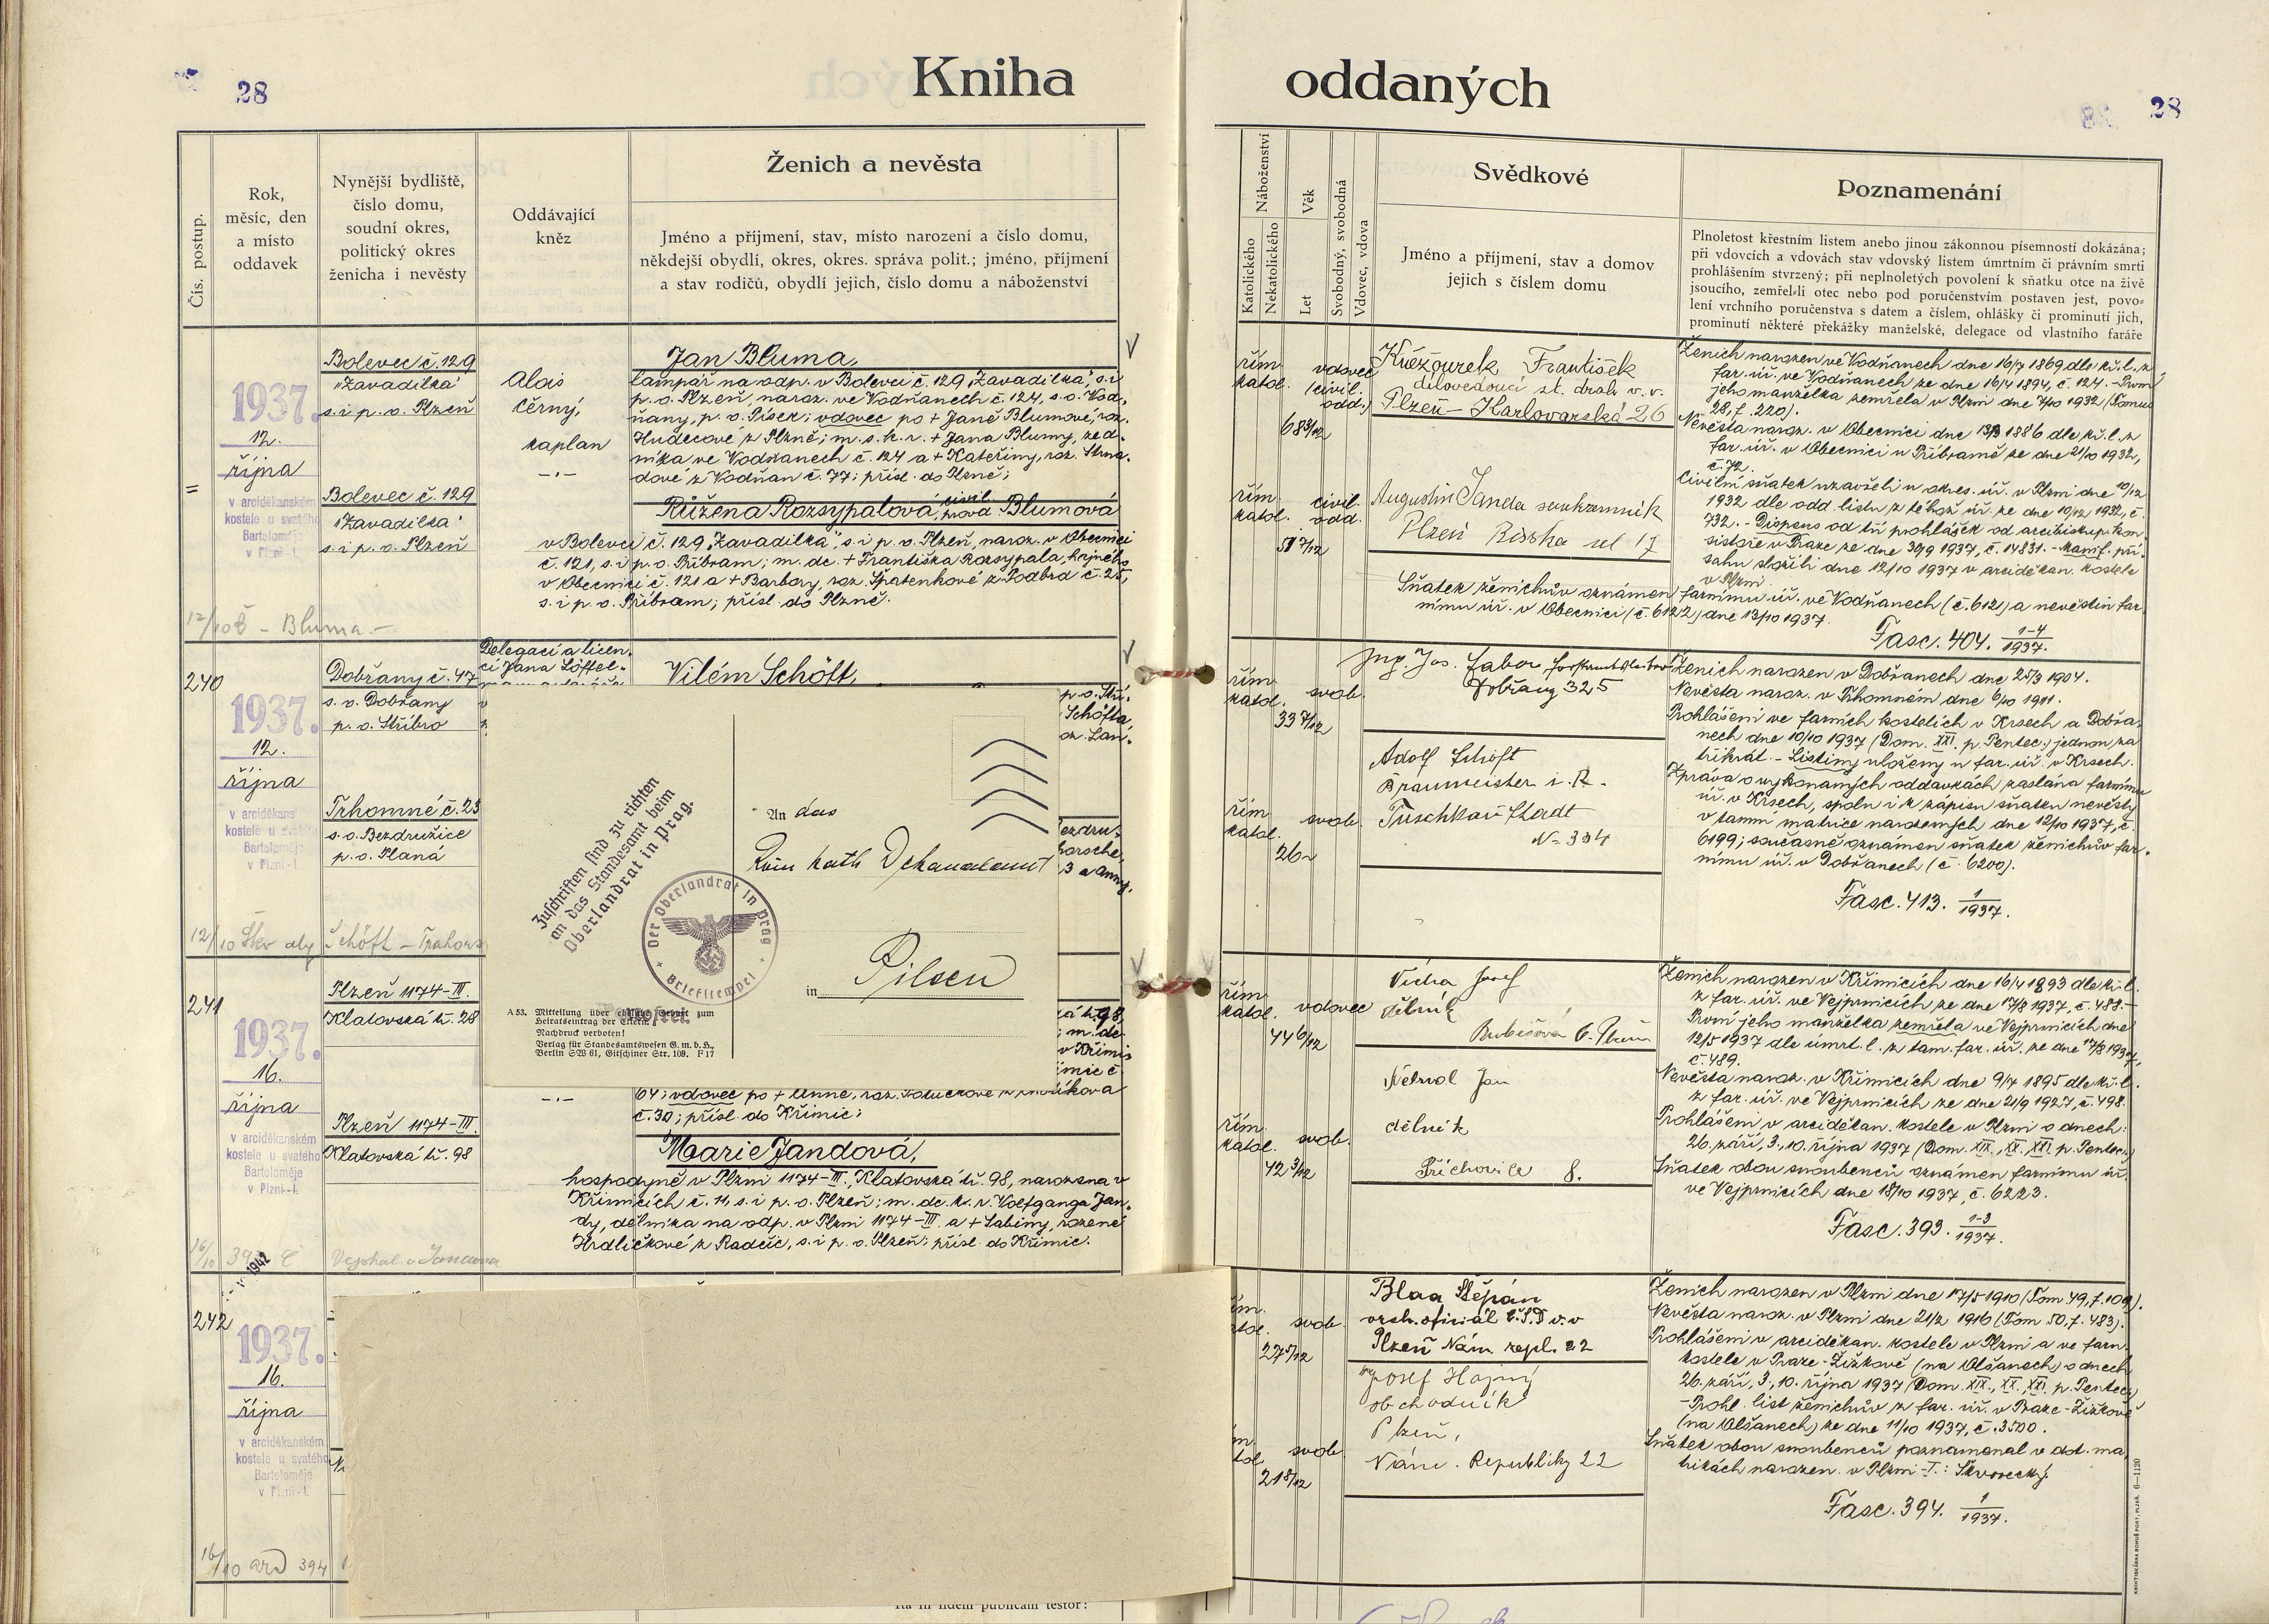 28
Kniha
oddaných
28
Čís. postup.
Rok,
měsíc, den
a místo
oddavek
Nynější bydliště,
číslo domu,
soudní okres,
politický okres
ženicha i nevěsty
Oddávající
kněz
Ženich a nevěsta
Jméno a příjmení, stav, místo narození a číslo domu,
někdejší obydlí, okres, okres. správa polit.; jméno, příjmení
a stav rodičů, obydlí jejich, číslo domu a náboženství
Náboženství
Katolického
Nekatolického
Věk
Let
Svobodný, svobodná
Vdovec, vdova
Svědkové
Jméno a příjmení, stav a domov
jejich s číslem domu
Poznamenání
Plnoletost křestním listem anebo jinou zákonnou písemností dokázána;
při vdovcích a vdovách stav vdovský listem úmrtním či právním smrti
prohlášením stvrzený; při neplnoletých povolení k sňatku otce na živě
jsoucího, zemřel-li otec nebo pod poručenstvím postaven jest, povo-
lení vrchního poručenstva s datem a číslem, ohlášky či prominutí jich,
prominutí některé překážky manželské, delegace od vlastního faráře
1937.
12.
října
v arciděkanském
kostele u svatého
Bartoloměje
v Plzni-I.
Bolevec č. 129
"Zavadilka"
s. i p. o. Plzeň
Bolevec č. 129
"Zavadilka"
s. i p. o. Plzeň
Alois
Černý,
kaplan
-.-
Jan Bluma,
lampář na odp. v Bolevci č. 129 "Zavadilka", s. i
p. o. Plzeň, naroz. ve Vodňanech č. 124, s. o. Vod-
ňany, p. o. Písek; vdovec po + Janě Blumové, roz.
Hudecové z Plzně; m. s. k. r. + Jana Blumy, zed-
níka ve Vodňanech č. 124 a + Kateřiny, roz. Strna-
dové z Vodňan č. 77; přísl. do Plzně;
Růžena Rozsypalová, civil. provd. Blumová
v Bolevci č. 129 "Zavadilka", s. i p. o. Plzeň, naroz. v Obecnici
č. 121, s. i p. o. Příbram; m. dc. + Františka Rozsypala, hajného
v Obecnici č. 121 a + Barbory, roz. Špatenkové z Podbrd č. 25,
s. i p. o. Příbram; přísl. do Plzně.
Bluma
řím.
katol.
vdovec
(civil.
odd.)
68 3/12
řím.
katol.
civil.
odd.
51 7/12
Křéžourek František
dílovedoucí st. drah v. v.
Plzeň - Karlovarská 26
Augustin Janda soukromník
Plzeň
ul 17
Ženich narozen ve Vodňanech dne 16/7 1869 dle kř. l. z
far. úř. ve Vodňanech ze dne 16/4 1894, č. 124. - První
jeho manželka zemřela v Plzni dne 7/10 1932 (Tomus
28, f. 220).
Nevěsta naroz. v Obecnici dne 13/3 1886 dle kř. l. z
far. úř. v Obecnici u Příbramě ze dne 21/10 1932,
č. 72.
Civilní sňatek uzavřeli u okres. úř. v Plzni dne 10/12
1932 dle odd. listu z téhož úř. ze dne 10/12 1932, č.
732. - Dispens od tří prohlášek od arcibiskup. kon-
sistoře v Praze ze dne 30/9 1937, č. 14831. - Manif. pří-
sahu složili dne 12/10 1937 v arciděkan. kostele
v Plzni.
Sňatek ženichův oznámen farnímu úř. ve Vodňanech (č. 6121) a nevěstin far-
nímu úř. v Obecnici (č. 6122) dne 13/10 1937.
Fasc. 404. 1-4/1937.
240
1937.
12.
října
v arciděkans
kostele u svatého
Bartoloměje
v Plzni-I.
Dobřany č. 47
s. o. Dobřany
p. o. Stříbro
Trhomné č. 23
s. o. Bezdružice
p. o. Planá
Schöft -
Delegací a licen-
cí Jana Löffel-
Vilém Schöft,
p. o. Stří-
Schöfta,
oz. Lan-
ezdru-
horsche,
3 a Anny,
Zuschriften sind zu richten
an das Standesamt beim
Oberlandrat in Prag.
An das
Röm kath Dekanalamt
Der Oberlandrat in Prag
Briefstempel
in Pilsen
A 53. Mitteilung über eheliche Geburt zum
Heiratseintrag der Eltern.
Nachdruck verboten!
Verlag für Standesamtswesen G. m. b. H.,
Berlin SW 61, Gitschiner Str. 109. F 17
řím.
katol.
svob.
33 7/12
řím.
katol.
svob.
26
Ing. Jos. Gabor
Dobřany 325
Adolf Schöft
Braumeister i. R.
Tuschkau Stadt
No 334
Ženich narozen v Dobřanech dne 25/3 1904.
Nevěsta naroz. v Trhomném dne 6/10 1911.
Prohlášeni ve farních kostelích v Krsech a Dobřa-
nech dne 10/10 1937 (Dom. XXI. p. Pentec.) jednou za
třikrát. - Listiny uloženy u far. úř. v Krsech.
Zpráva o vykonaných oddavkách zaslána farnímu
úř. v Krsech, spolu i k zápisu sňatku nevěsty
v tamní matrice narozených dne 12/10 1937, č.
6199; současně oznámen sňatek ženichův far-
nímu úř. v Dobřanech (č. 6200).
Fasc. 413. 1/1937.
241
1937.
16.
října
v arciděkanském
kostele u svatého
Bartoloměje
v Plzni-I.
Plzeň 1174-III.
Klatovská tř. 28
Plzeň 1174-III.
Klatovská tř. 98
-.-
á tř. 98,
; m. dc.
v Křimic
imic č.
64; vdovec po + Anně, roz.
č. 30; přísl. do Křimic;
Marie Jandová,
hospodyně v Plzni 1174-III., Klatovská tř. 98, narozena v
Křimicích č. 11, s. i p. o. Plzeň; m. dc. k. r. Wolfganga Jan-
dy, dělníka na odp. v Plzni 1174-III. a + Sabiny, rozené
Hrdličkové z Radčic, s. i p. o. Plzeň; přísl. do Křimic.
řím.
katol.
vdovec
44 6/12
řím.
katol.
svob.
42 3/12
Vícha Josef
dělník
6. Plzeň
Jan
dělník
Příchovice 8.
Ženich narozen v Křimicích dne 16/4 1893 dle kř. l.
z far. úř. ve Vejprnicích ze dne 17/8 1937, č. 488. -
První jeho manželka zemřela ve Vejprnicích dne
12/5 1937 dle úmrt. l. z tam. far. úř. ze dne 17/8 1937,
č. 489.
Nevěsta naroz. v Křimicích dne 9/7 1895 dle kř. l.
z far. úř. ve Vejprnicích ze dne 21/9 1927, č. 498.
Prohlášeni v arciděkan. kostele v Plzni o dnech:
26. září, 3., 10. října 1937 (Dom. XIX., XX., XXI. p. Pentec.)
Sňatek obou snoubenců oznámen farnímu úř.
ve Vejprnicích dne 18/10 1937, č. 6223.
Fasc. 393. 1-3/1937.
1942
242
1937.
16.
října
v arciděkanském
kostele u svatého
Bartoloměje
v Plzni-I.
16/10
394
svob.
27 5/12
svob.
21 8/12
Blaa Štěpán
vrch. oficiál Č.S.D v. v
Plzeň Nám. repl. 22
Josef Hajný
obchodník
Plzeň,
Nám. Republiky 22
Ženich narozen v Plzni dne 17/5 1910 (Tom 49, f. 109).
Nevěsta naroz. v Plzni dne 21/2 1916 (Tom 50, f. 483).
Prohlášeni v arciděkan. kostele v Plzni a ve farn.
kostele v Praze-Žižkově (na Olšanech) o dnech
26. září, 3., 10. října 1937 (Dom. XIX., XX., XXI. p. Pentec.)
- Prohl. list ženichův z far. úř. v Praze-Žižkově
(na Olšanech) ze dne 11/10 1937, č. 3500.
Sňatek obou snoubenců poznamenal v dot. ma-
trikách narozen. v Plzni-I.: Škvorecký
Fasc. 394. 1/1937.
fidem publicam testor:
KNIHTISKÁRNA BOHUŠ PORT, PLZEŇ. 6—1120